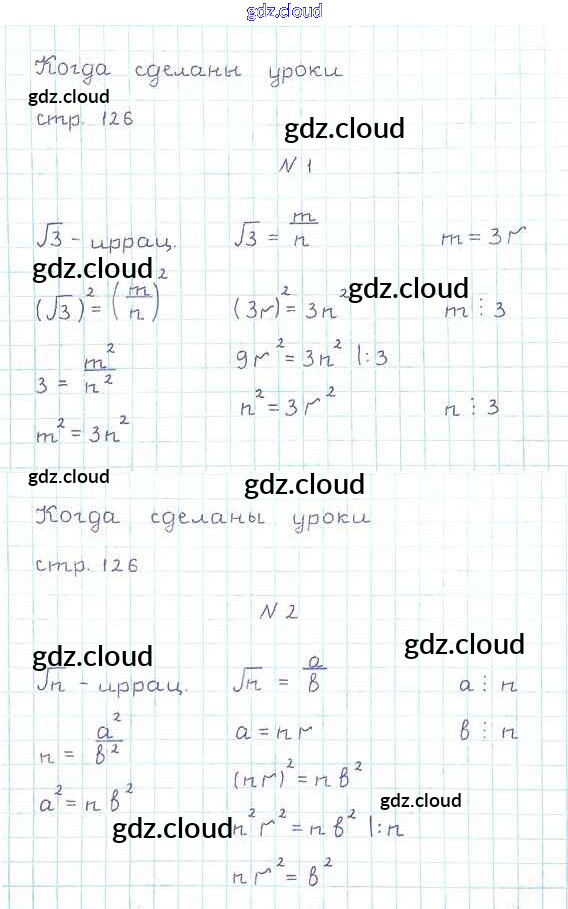 gdz.cloud
Когда сделаны уроки
gdz.cloud
стр. 126
gdz.cloud
N 1
√3 - иррац.
√3 = m/n
m = 3r
gdz.cloud
gdz.cloud
(√3)² = (m/n)²
(3r)² = 3n²
m ⋮ 3
3 = m²/n²
9r² = 3n² |:3
m² = 3n²
n² = 3r²
n ⋮ 3
gdz.cloud
gdz.cloud
Когда сделаны уроки
стр. 126
N 2
gdz.cloud
gdz.cloud
√n - иррац.
√n = a/в
a ⋮ n
n = a²/в²
a = nr
в ⋮ n
a² = nв²
(nr)² = nв²
gdz.cloud
gdz.cloud
n²r² = nв² |:n
nr² = в²